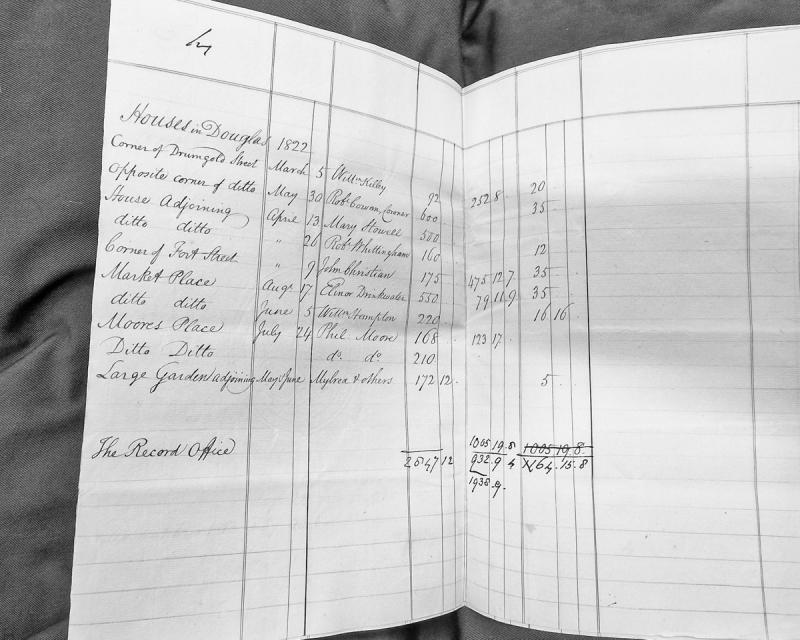 Houses in Douglas 1822
Corner of Drumgold Street March 5 Willm Killey 92 252 8 20
Opposite corner of ditto May 30 Robt Cowan, Coroner 600 35
House Adjoining April 13 Mary Howell 500
ditto ditto " 26 Robt Whittingham 160 12
Corner of Fort Street " 9 John Christian 175 475 12 7 35
Market Place Augt 17 Elinor Drinkwater 550 79 11 9 35
ditto ditto June 5 Willm Hampton 220 16 16
Moores Place July 24 Phil Moore 168 123 17
Ditto Ditto do do 210
Large Garden adjoining May & June Mylrea & others 172 12 5
1005 19 8 1005 19 8
The Record Office 2847 12 932 9 4 164 15 8
1938 9